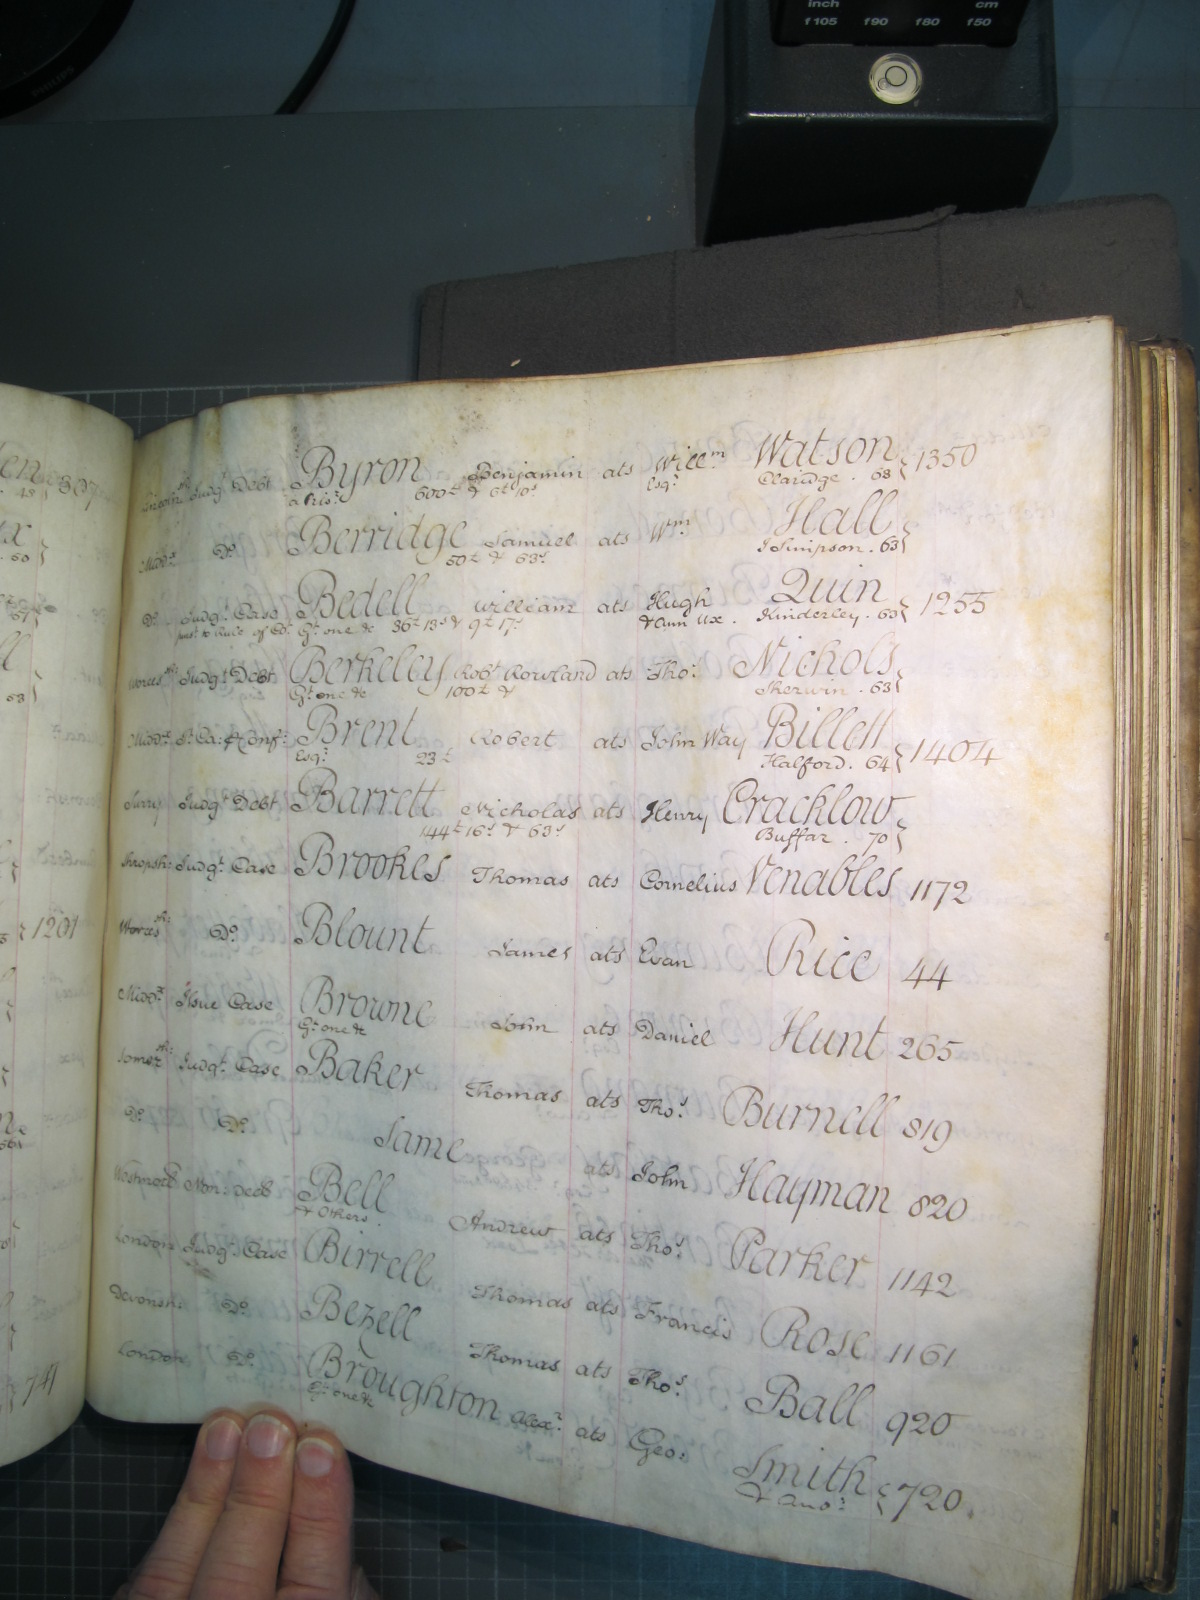 inch cm
f105 f90 f80 f50
PHILIPS
Lincolnsh: Judgt Debt Byron Benjamin ats Willm Watson 1350
a Prisr 600£ & 6£ 10s Esqr Claridge . 68
Middx Do. Berridge Samuel ats Wm Hall
50£ & 63s I Simpson . 63
Do. Judgt Case Bedell William ats Hugh Quin 1255
pust to Rule of Co. Gt one &c 36£ 13s & 9£ 17s & Ann Ux . Kinderley . 63
Worcesr sh: Judgt Debt Berkeley Robt Rowland ats Thos: Nichols
Gt one &c 100£ & Sherwin . 63
Middx Brent Robert ats John Way Billett 1404
Esqr 23£ Halford . 64
Surry Judgt Debt Barrett Nicholas ats Henry Cracklow
144£ 16s & 63s Buffar . 70
Shropsh: Judgt Case Brookes Thomas ats Cornelius Venables 1172
Worcesr sh: Do. Blount James ats Evan Rice 44
Middx Issue Case Browne John ats Daniel Hunt 265
Gt one &c
Somerst sh: Judgt Case Baker Thomas ats Thos: Burnell 819
Do. Do. Same ats John Hayman 820
Westmorld Non: Decb Bell Andrew ats Thos: Parker 1142
& Others .
London Judgt Case Birrell Thomas ats Francis Rose 1161
Devonsh: Do. Bezell Thomas ats Thos: Ball 920
London Do. Broughton Alexr ats Geo: Smith 720.
Gt one &c & Anor
307
1201
741